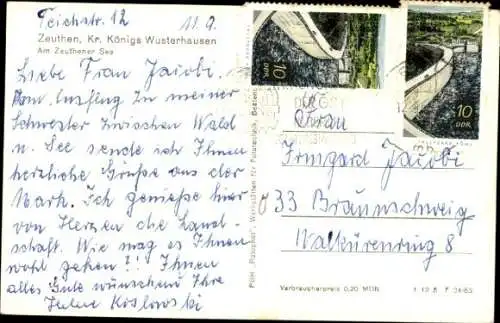 Teichstr. 12 11.9.
Zeuthen, Kr. Königs Wusterhausen
Am Zeuthener See
Liebe Frau Jacobi.
Vom Ausflug zu meiner
Schwester zwischen Wald
u. See sende ich Ihnen
herzliche Grüße aus der
Mark. Ich genieße hier
von Herzen die Land-
schaft. Wie mag es Ihnen
wohl gehen?!! Ihnen
alles Gute wünschend Ihre
Koslowski
10
DDR
10
DDR
Frau
Irmgard Jacobi
33 Braunschweig
Walkürenring 8
Verbraucherpreis 0,20 MDN